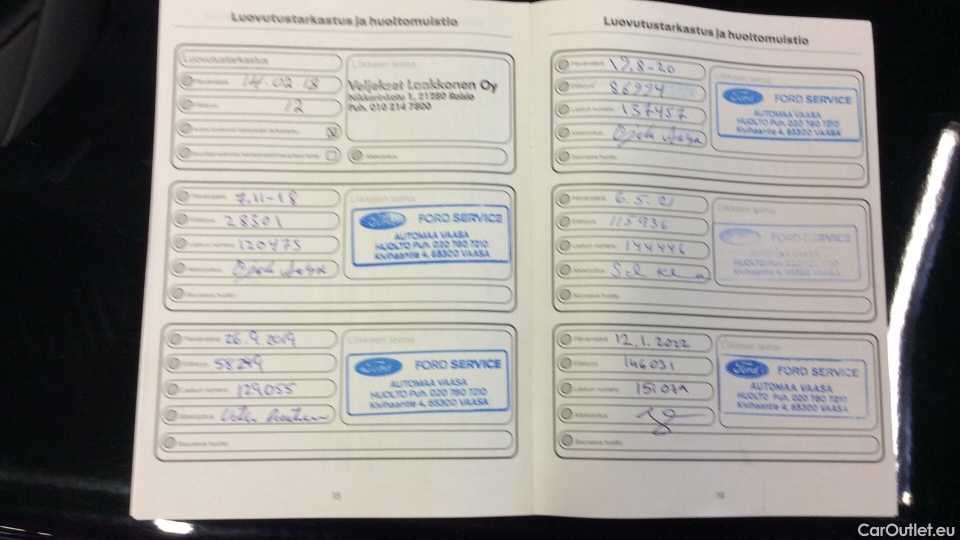 Luovutustarkastus ja huoltomuistio
Luovutustarkastus
Liikkeen leima
Päivämäärä 14.02 18
12
Veljekset Laakkonen Oy
Nikkarinkatu 1, 21280 Raisio
Puh. 010 214 7800
Allekirjoitus
Päivämäärä 7.11-18
Liikkeen leima
28301
Laskun numero 120475
Allekirjoitus
Seuraava huolto
Ford FORD SERVICE
AUTOMAA VAASA
HUOLTO Puh. 020 780 7210
Kivihaantie 4, 65300 VAASA
Päivämäärä 26.9.2019
Liikkeen leima
58249
Laskun numero 129055
Allekirjoitus
Seuraava huolto
Ford FORD SERVICE
AUTOMAA VAASA
HUOLTO Puh. 020 780 7210
Kivihaantie 4, 65300 VAASA
18
Luovutustarkastus ja huoltomuistio
Päivämäärä 19.8-20
Liikkeen leima
86994
Laskun numero 137457
Allekirjoitus
Seuraava huolto
Ford FORD SERVICE
AUTOMAA VAASA
HUOLTO Puh. 020 780 7210
Kivihaantie 4, 65300 VAASA
Päivämäärä 6.5.21
Liikkeen leima
115936
Laskun numero 144446
Allekirjoitus
Seuraava huolto
FORD SERVICE
AUTOMAA VAASA
HUOLTO Puh. 020 780 7210
Kivihaantie 4, 65300 VAASA
Päivämäärä 12.1.2022
Liikkeen leima
146031
Laskun numero 151079
Allekirjoitus
Seuraava huolto
Ford FORD SERVICE
AUTOMAA VAASA
HUOLTO Puh. 020 780 7210
Kivihaantie 4, 65300 VAASA
19
CarOutlet.eu